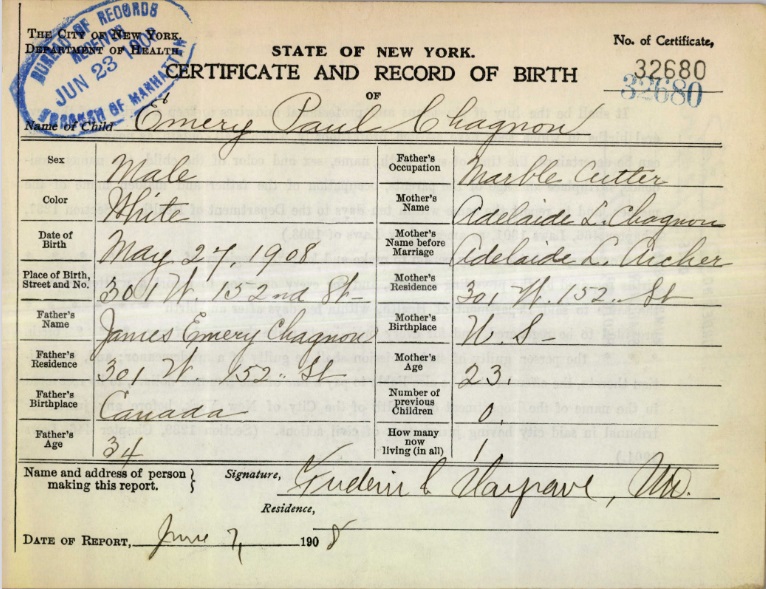 THE CITY OF NEW YORK.
DEPARTMENT OF HEALTH.
BUREAU OF RECORDS
RECEIVED
JUN 23
BOROUGH OF MANHATTAN
STATE OF NEW YORK.
CERTIFICATE AND RECORD OF BIRTH
OF
No. of Certificate,
32680
32680
Name of Child Emery Paul Chagnon
Sex Male
Father's Occupation Marble Cutter
Color White
Mother's Name Adelaide L. Chagnon
Date of Birth May 27, 1908
Mother's Name before Marriage Adelaide L. Archer
Place of Birth, Street and No. 301 W. 152nd St-
Mother's Residence 301 W. 152. St
Father's Name James Emery Chagnon
Mother's Birthplace U. S-
Father's Residence 301 W. 152. St
Mother's Age 23.
Father's Birthplace Canada
Number of previous Children 0
Father's Age 34
How many now living (in all) 1
Name and address of person making this report.
Signature, Hargrave, MD.
Residence,
DATE OF REPORT, June 7, 1908